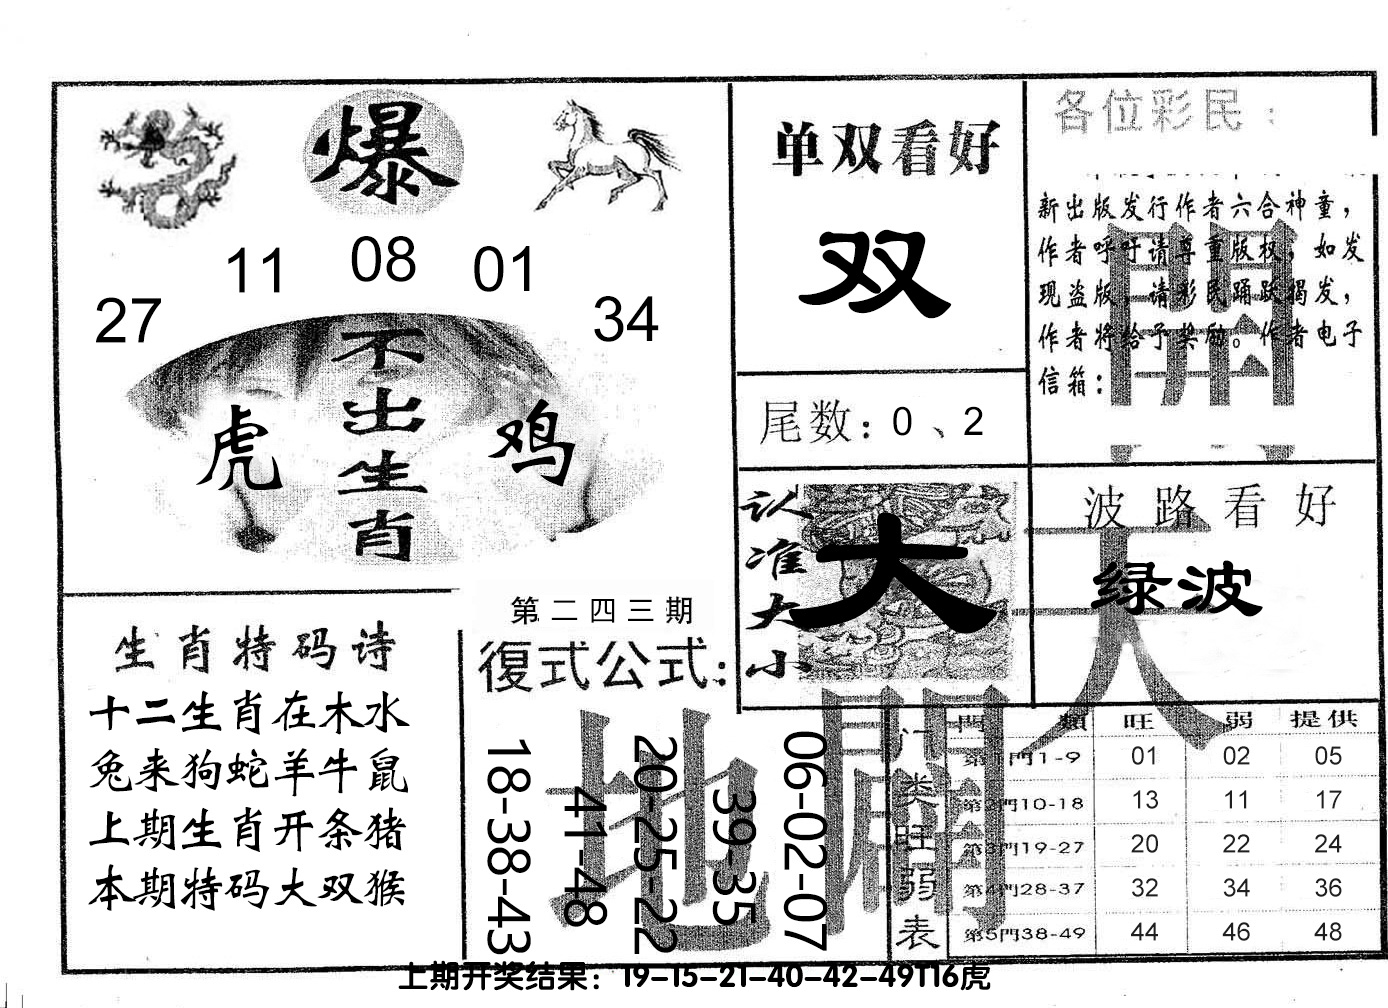 爆
27 11 08 01 34
不出生肖
虎
鸡
单双看好
双
尾数：0、2
各位彩民：
新出版发行作者六合神童，
作者呼吁请尊重版权，如发
现盗版，请彩民踊跃揭发，
作者将给予奖励。作者电子
信箱：
認准大小
大
波路看好
绿波
天
開
地
闢
生肖特码诗
十二生肖在木水
兔来狗蛇羊牛鼠
上期生肖开条猪
本期特码大双猴
第二四三期
復式公式：
18-38-43
41-48
20-25-22
39-35
06-02-07
门类旺弱表
門類 旺 弱 提供
第1門1-9 01 02 05
第2門10-18 13 11 17
第3門19-27 20 22 24
第4門28-37 32 34 36
第5門38-49 44 46 48
上期开奖结果：19-15-21-40-42-49T16虎